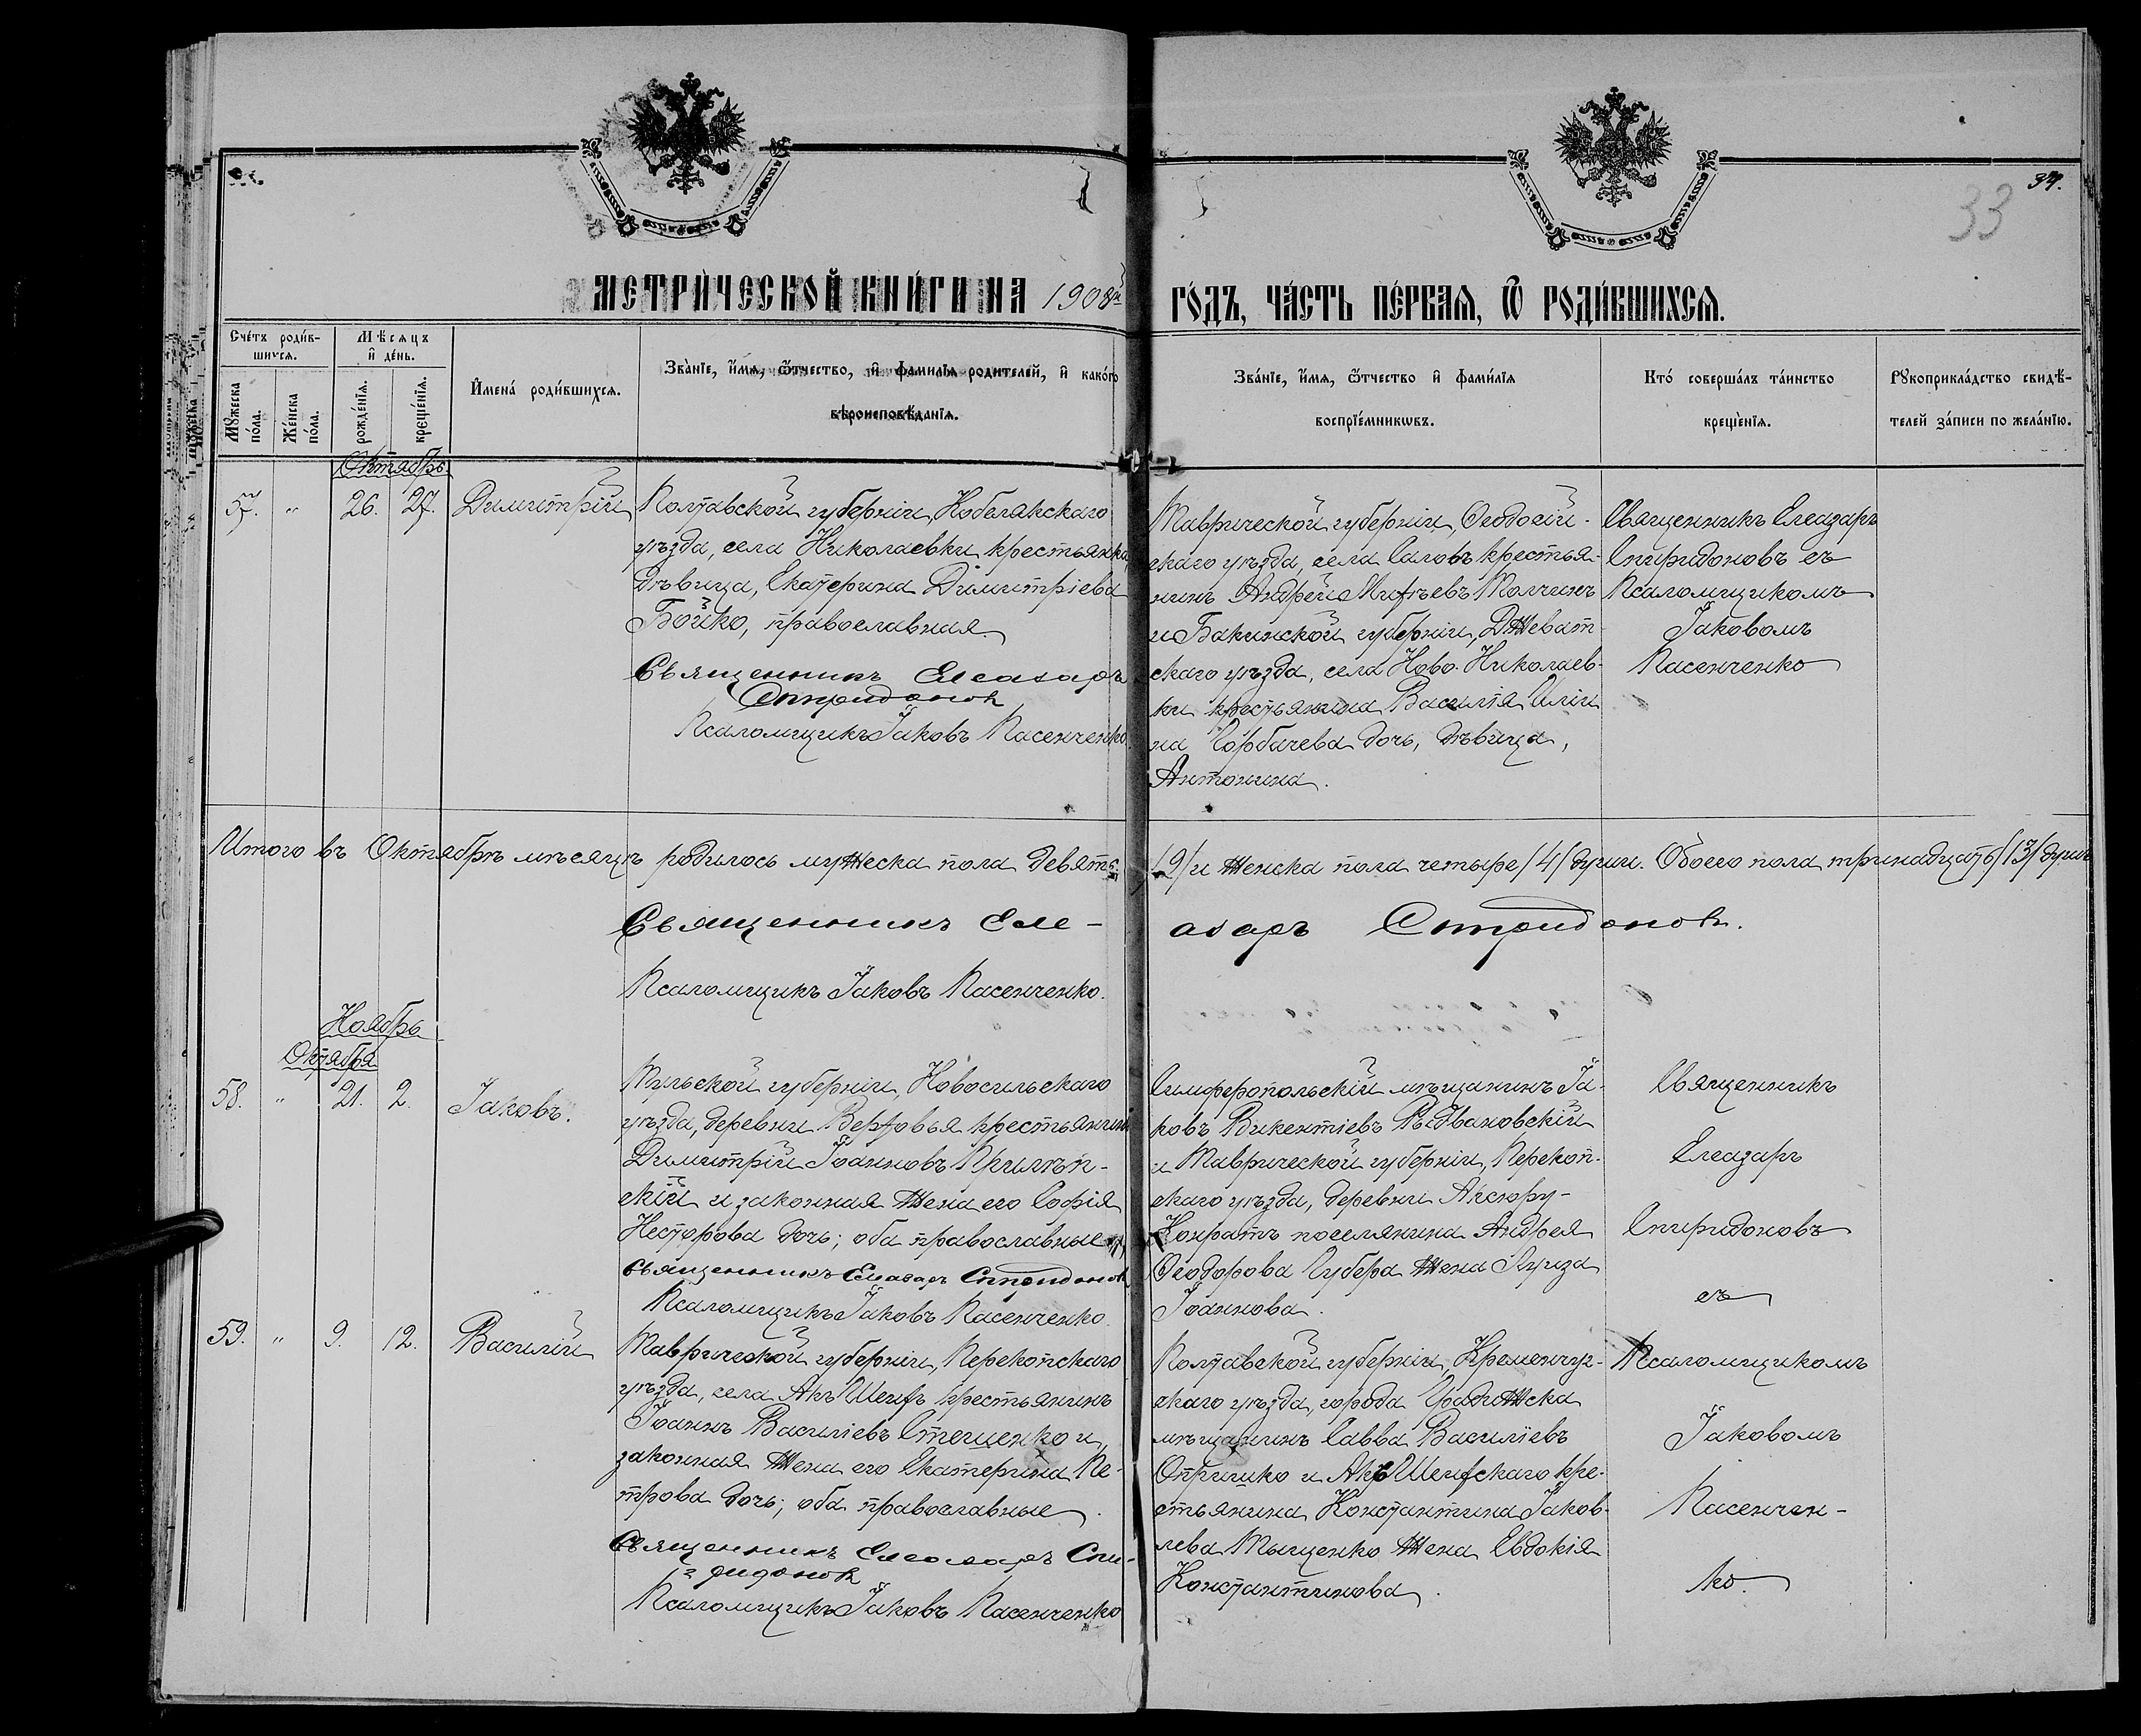 34.
33
МЕТРИЧЕСКОЙ КНИГИ НА 1908й ГОДЪ, ЧАСТЬ ПЕРВАЯ, Ѿ РОДИВШИХСЯ.
Счетъ родившихся.
Мужеска пола.
Женска пола.
Мѣсяцъ и день.
рожденїя.
крещенїя.
Имена родившихся.
Званїе, имя, ѿтчество, и фамилїя родителей, и какого
вѣроисповѣданїя.
Званїе, имя, ѿтчество и фамилїя
воспрїемникѡвъ.
Кто совершалъ таинство
крещенїя.
Рꙋкоприкладство свидѣ-
телей записи по желанїю.
Октябрь
57. " 26. 27. Димитрій
Полтавской губерніи, Кобелякскаго
уѣзда, села Николаевки крестьянка
дѣвица, Екатерина Димитріева
Бойко, православная.
Священникъ Елеазаръ
Спиридоновъ
Псаломщикъ Іаковъ Пасенченко.
Таврической губерніи, Ѳеодосій-
скаго уѣзда, села крестья-
нинъ Андрей
и Бакинской губерніи, Джеват-
скаго уѣзда, села Ново-Николаев-
ки крестьянина Василія Иліи
на Горбачева дочь, дѣвица,
Антонина.
Священникъ Елеазаръ
Спиридоновъ съ
Псаломщикомъ
Іаковомъ
Пасенченко
Итого въ Октябрѣ мѣсяцѣ родилось мужеска пола девять /9/ и женска пола четыре /4/ души. Обоего пола тринадцать /13/ душъ
Священникъ Еле-
азаръ Спиридоновъ.
Псаломщикъ Іаковъ Пасенченко.
Ноябрь
Октября
58. " 21. 2. Іаковъ.
Тульской губерніи, Новосильскаго
уѣзда, деревни Верховья крестьянинъ
Димитрій Іоанновъ Прилѣп-
скій и законная жена его Софія
Несторова дочь; оба православные
Священникъ Елеазаръ Спиридоновъ
Псаломщикъ Іаковъ Пасенченко.
Симферопольскій мѣщанинъ Іа-
ковъ Викентіевъ
и Таврической губерніи, Перекоп-
скаго уѣзда, деревни
Конратъ поселянина Андрея
Ѳеодорова Губера жена Луиза
Іоаннова.
Священникъ
Елеазаръ
Спиридоновъ
съ
59. " 9. 12. Василій
Таврической губерніи, Перекопскаго
уѣзда, села Акъ-Шеихъ крестьянинъ
Іоаннъ Василіевъ Стешенко и
законная жена его Екатерина Пе-
трова дочь; оба православные.
Священникъ Елеазаръ Спи-
ридоновъ
Псаломщикъ Іаковъ Пасенченко
Полтавской губерніи, Кременчуг-
скаго уѣзда, города Градижска
мѣщанинъ Савва Василіевъ
Опришко и Акъ-Шеихскаго кре-
стьянина Константина Іаков-
лева Тыщенко жена Евдокія
Константинова.
Псаломщикомъ
Іаковомъ
Пасенчен-
ко.